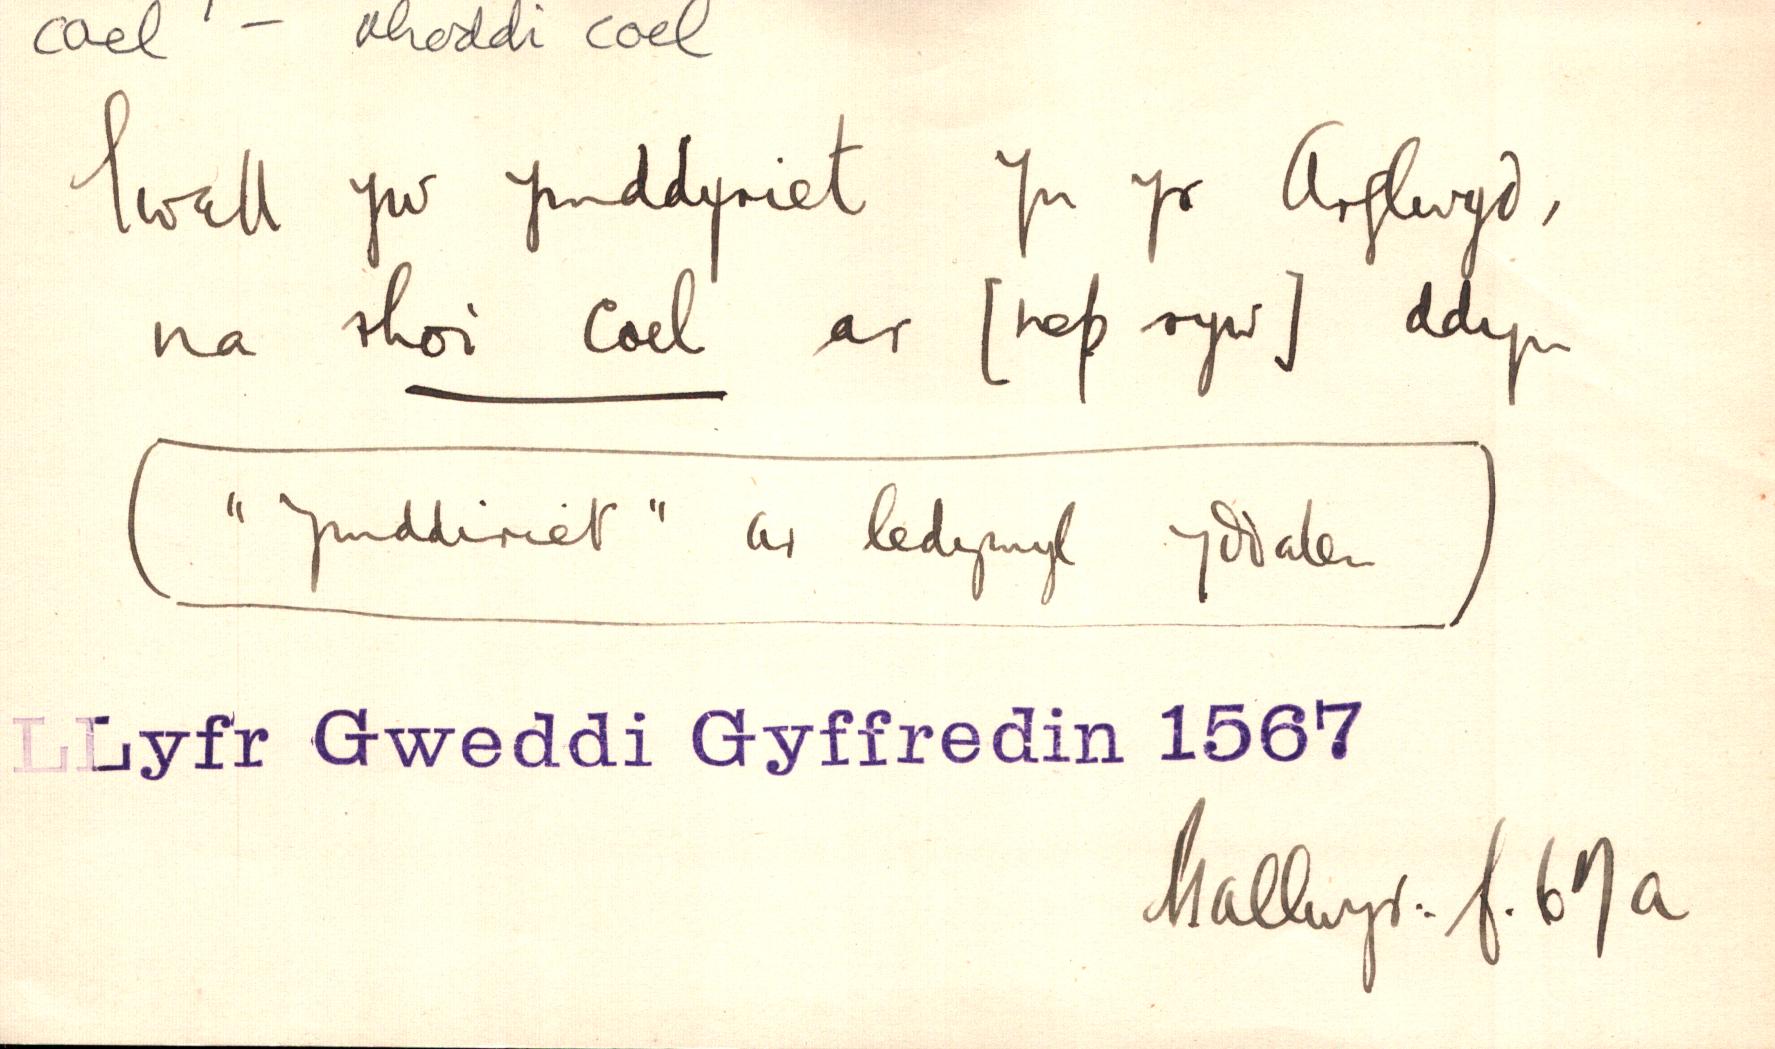 coel¹ – rhoddi coel
Gwell yw ymddyriet yn yr Arglwyð,
na rhoi coel ar [nep ryw] ddyn
( "ymddiriet" ar ledymyl yððalen )
LLyfr Gweddi Gyffredin 1567
Mallwyr. f. 67a